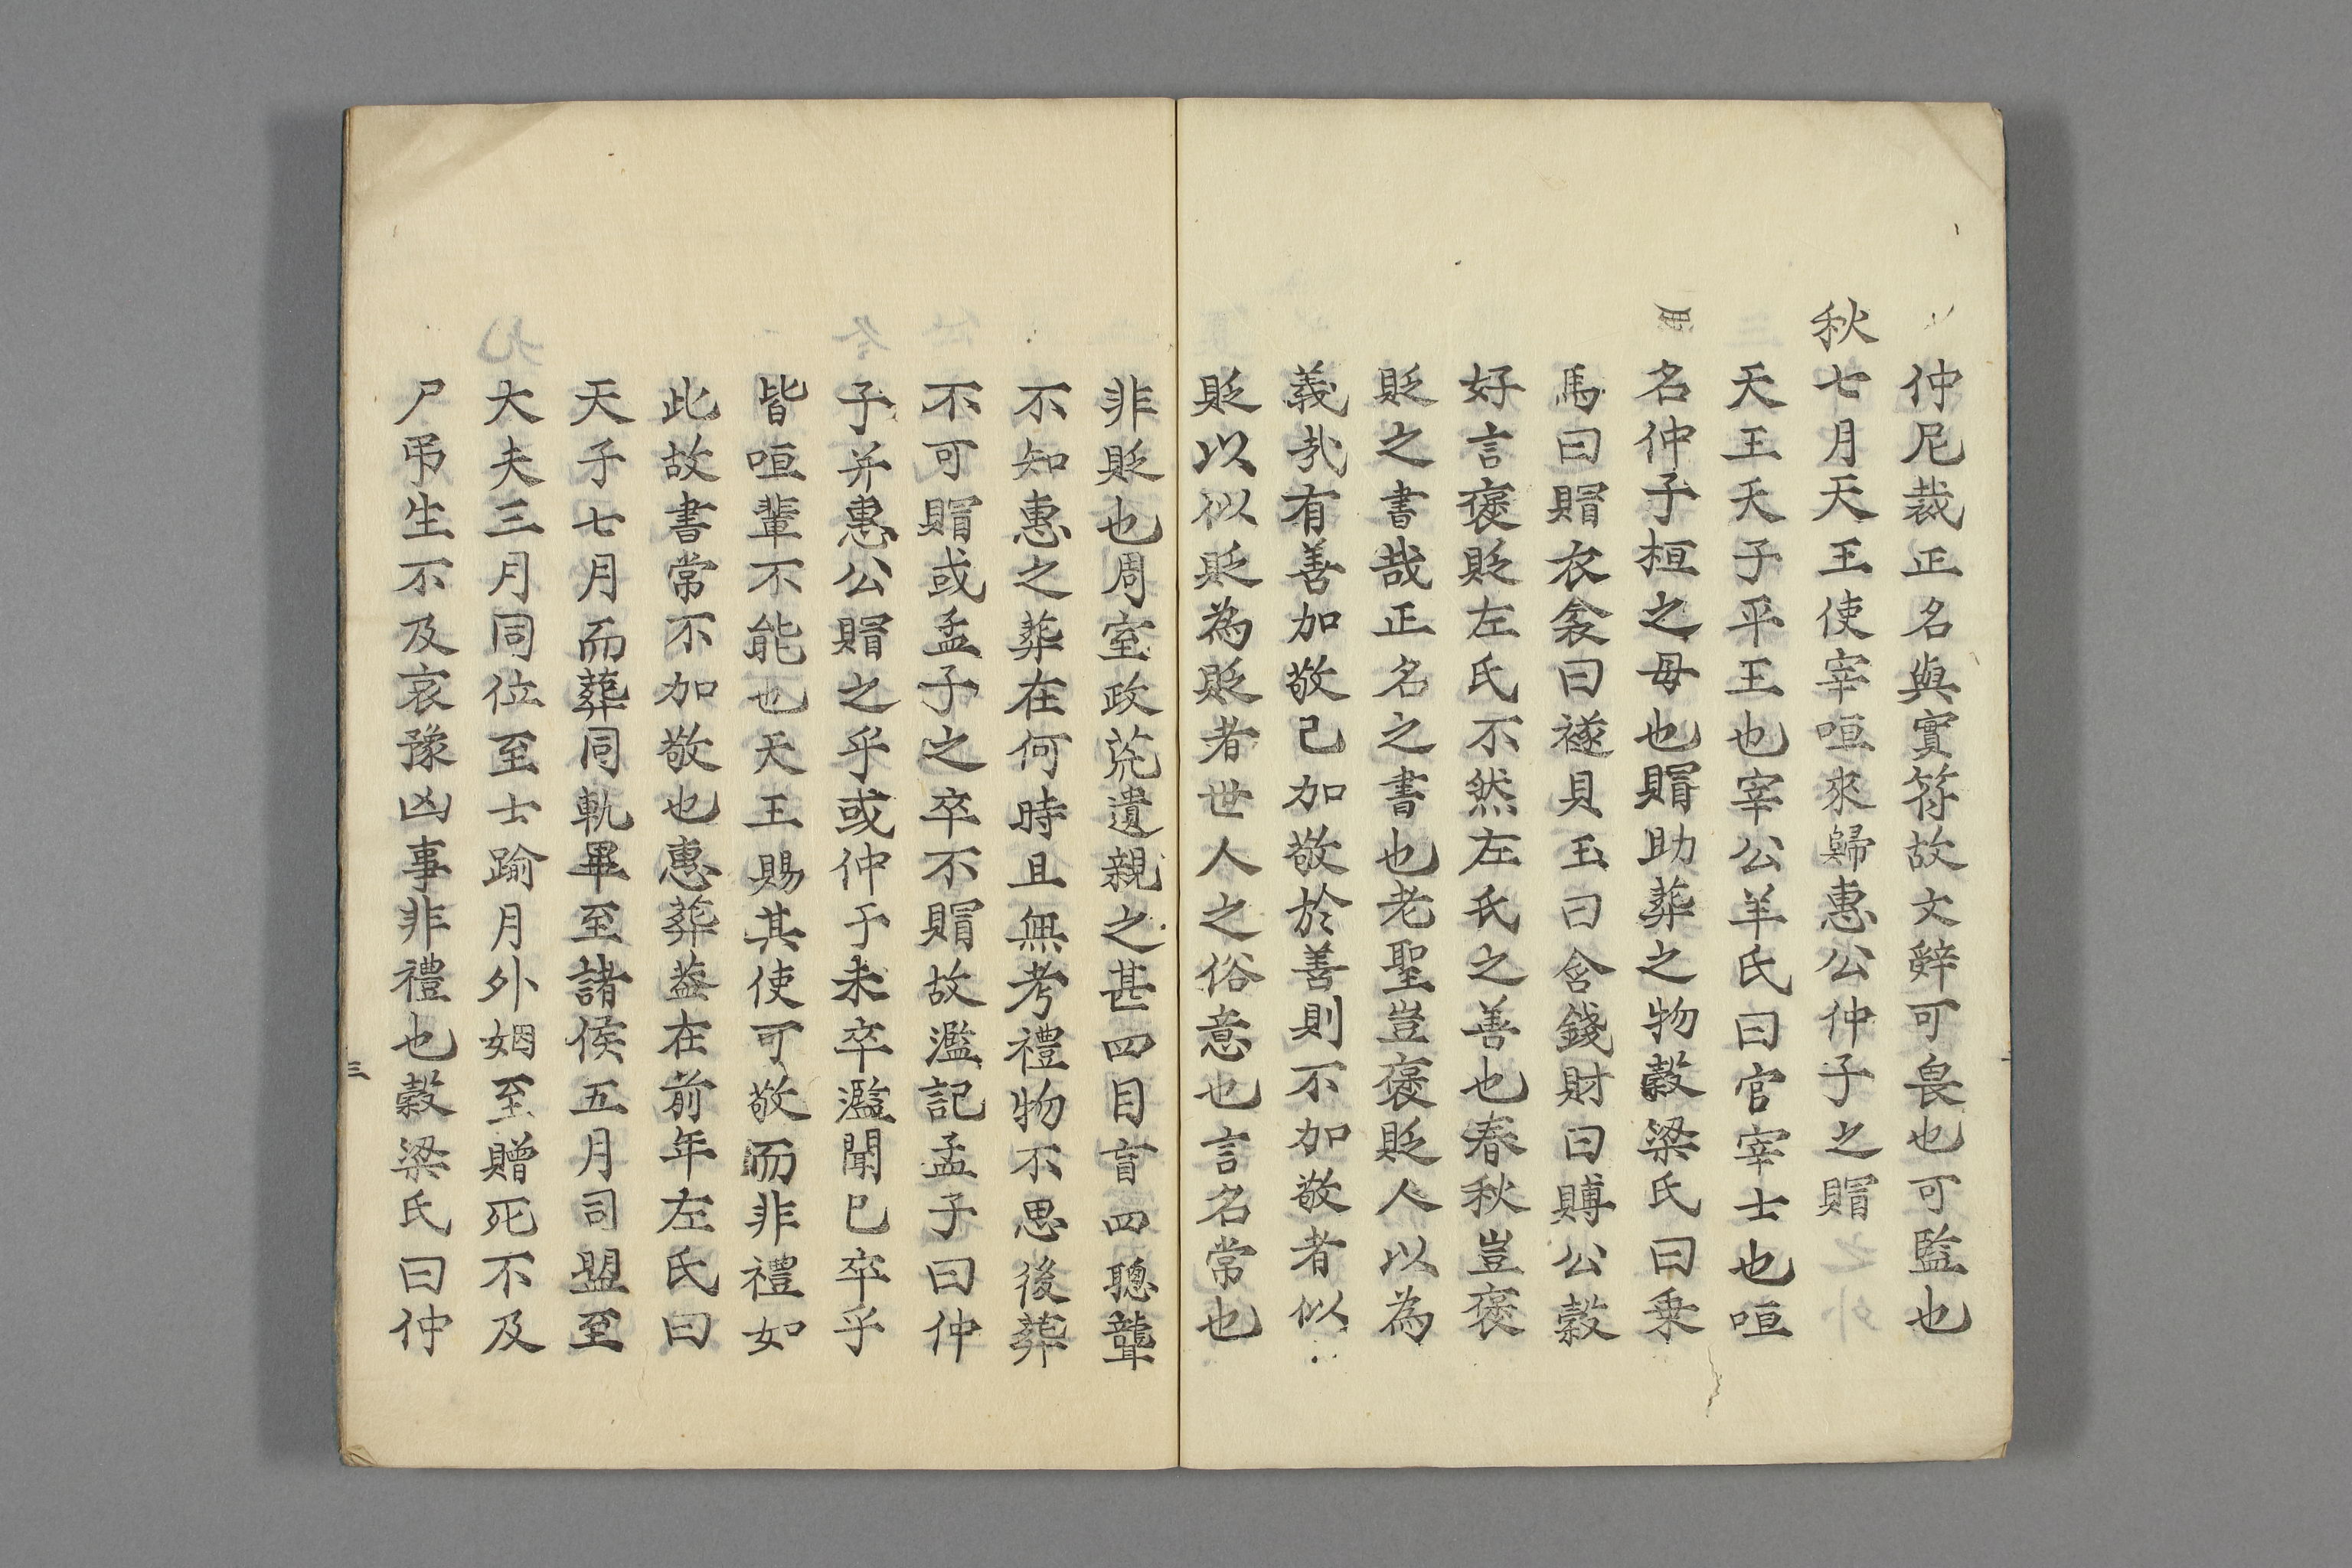 仲尼裁正名與實符故文辤可畏也可監也
秋七月天王使宰咺來歸惠公仲子之賵
天王天子平王也宰公羊氏曰官宰士也咺
名仲子桓之母也賵助葬之物穀梁氏曰乗
馬曰賵衣衾曰襚貝玉曰含錢財曰賻公穀
好言褒貶左氏不然左氏之善也春秋豈褒
貶之書哉正名之書也老聖豈褒貶人以為
義㢤有善加敬己加敬於善則不加敬者似
貶以似貶為貶者世人之俗意也言名常也
非貶也周室政荒遺親之甚四目盲四聰聾
不知惠之葬在何時且無考禮物不思後葬
不可賵或孟子之卒不賵故濫記孟子曰仲
子并惠公賵之乎或仲子未卒濫聞已卒乎
皆咺輩不能也天王賜其使可敬而非禮如
此故書常不加敬也惠葬葢在前年左氏曰
天子七月而葬同軌畢至諸侯五月同盟至
大夫三月同位至士踰月外姻至贈死不及
尸弔生不及哀豫凶事非禮也穀梁氏曰仲
三